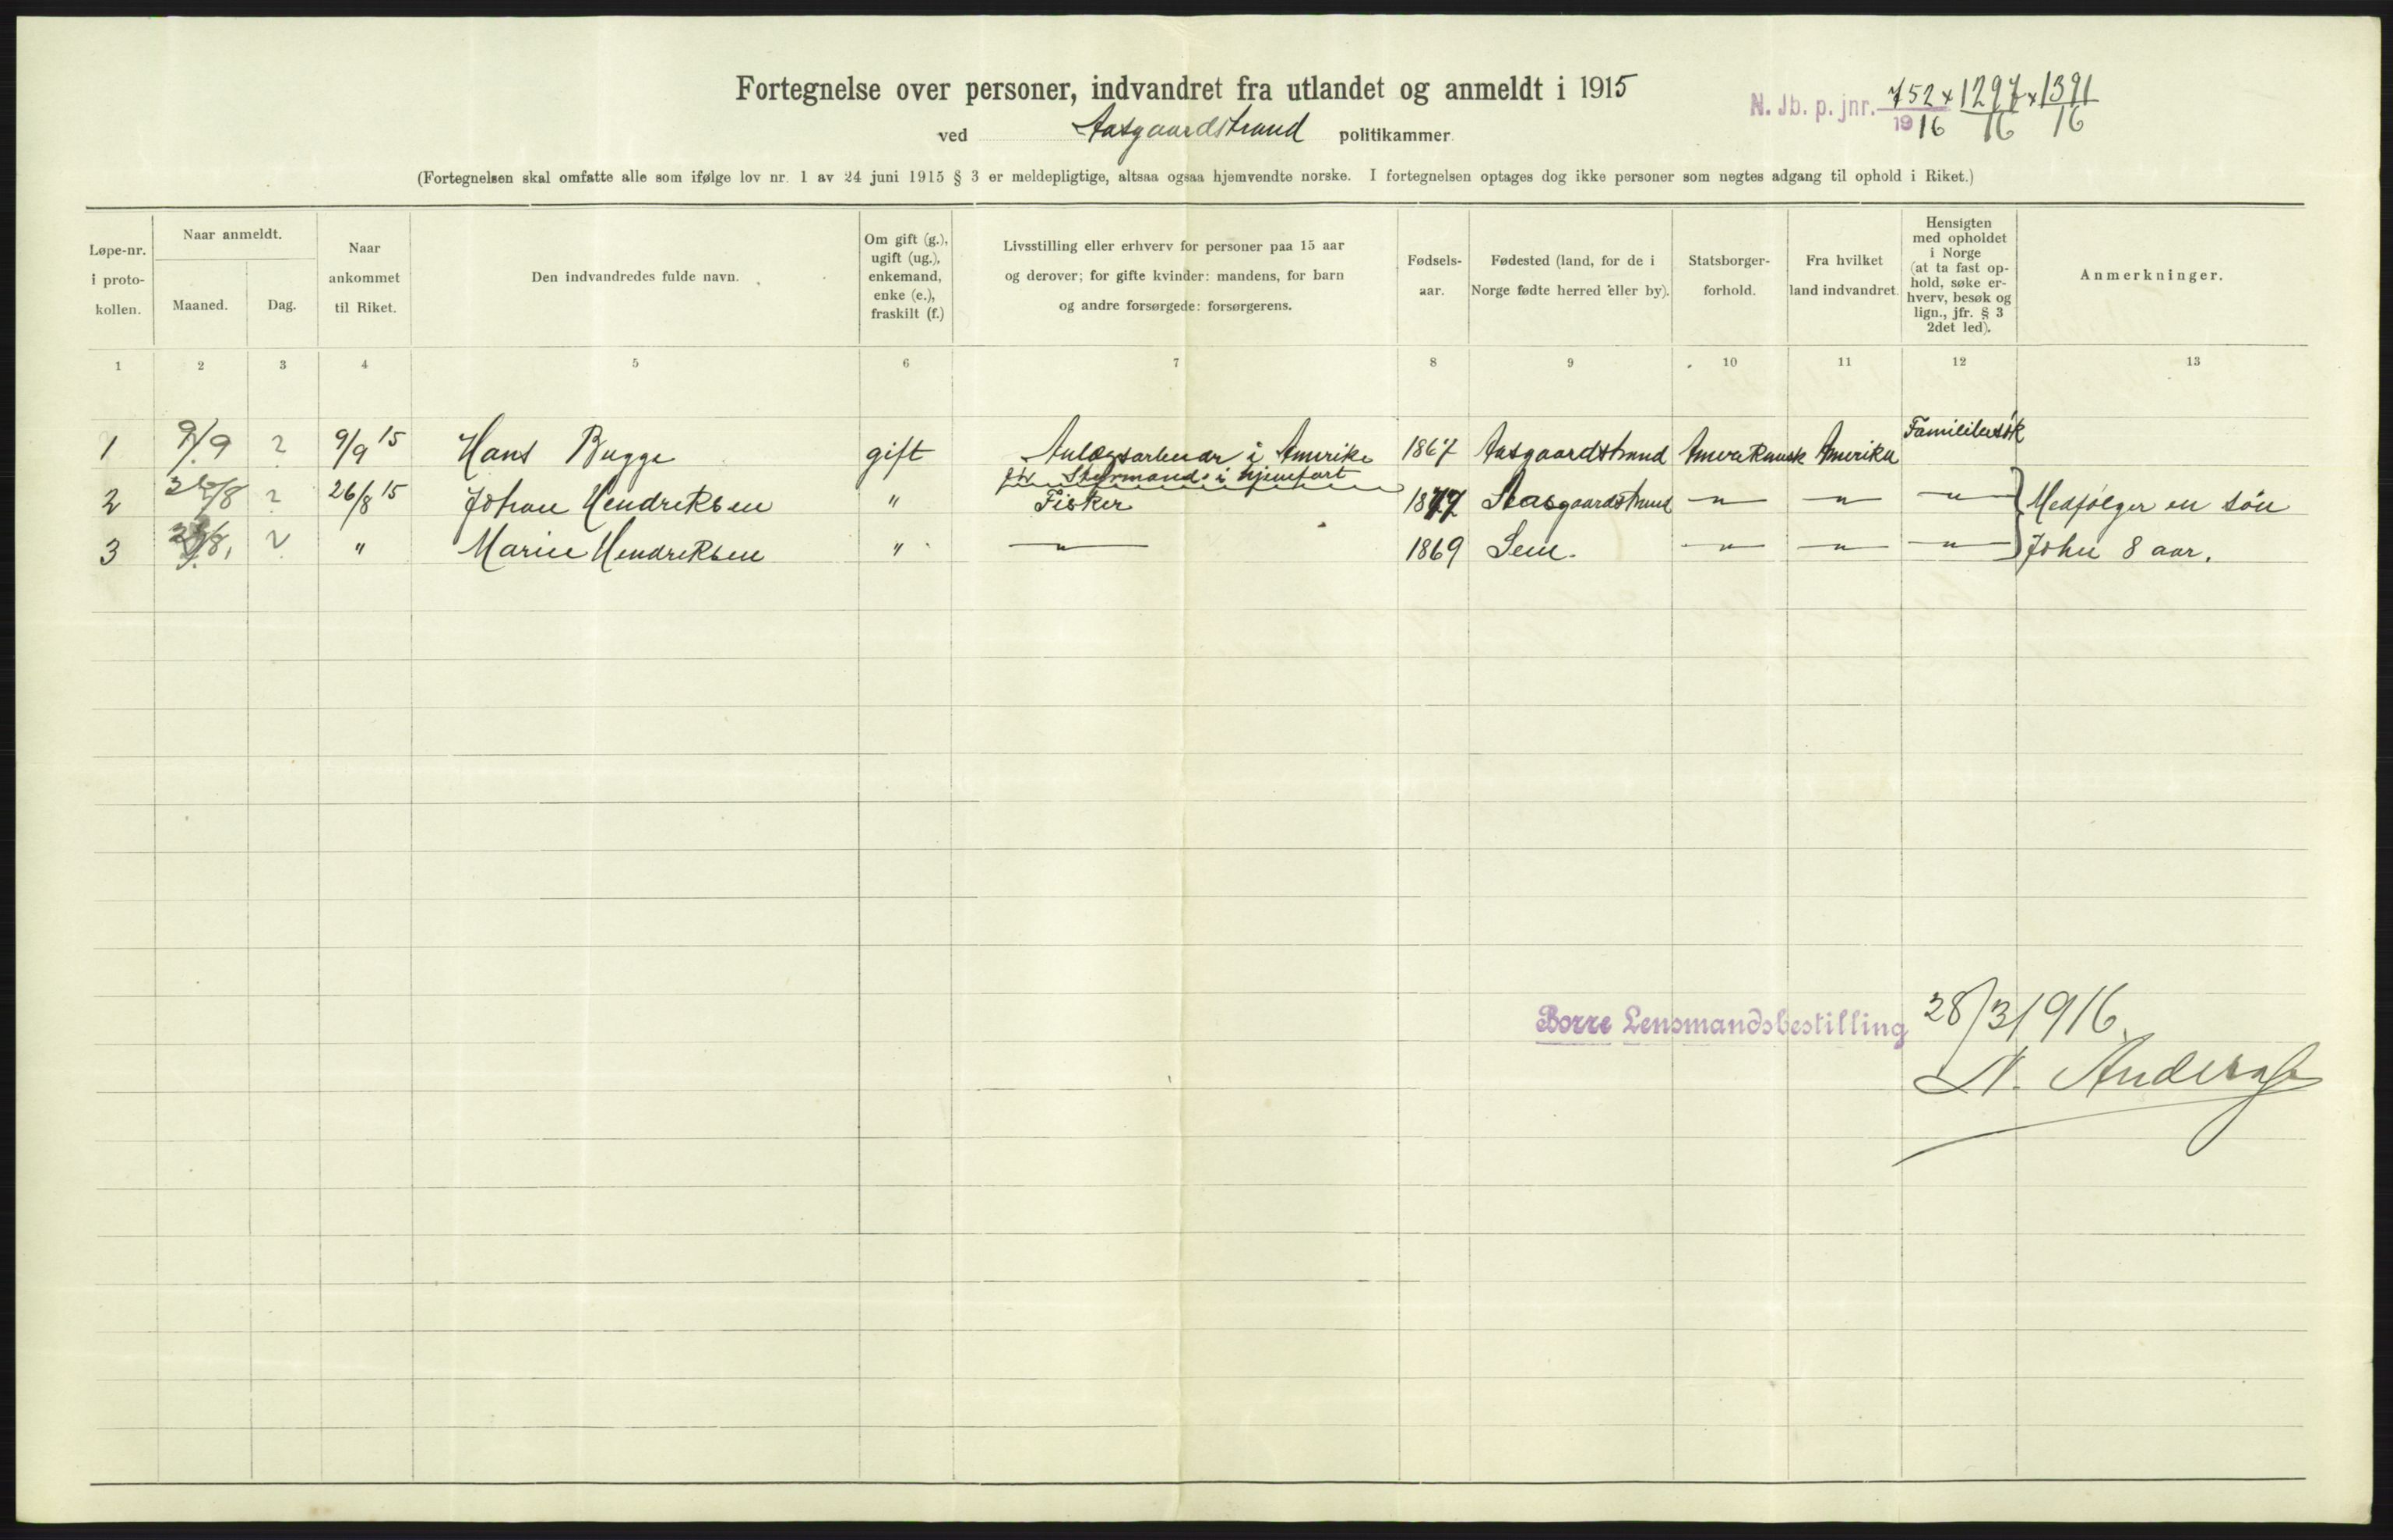 Fortegnelse over personer, indvandret fra utlandet og anmeldt i 1915
N. Jb. p. jnr. 752/1916 x 1297/16 x 1391/16
ved Aasgaardstrand politikammer.
(Fortegnelsen skal omfatte alle som ifølge lov nr. 1 av 24 juni 1915 § 3 er meldepligtige, altsaa ogsaa hjemvendte norske. I fortegnelsen optages dog ikke personer som negtes adgang til ophold i Riket.)
Løpe-nr. i proto-kollen.
Naar anmeldt.
Maaned.
Dag.
Naar ankommet til Riket.
Den indvandredes fulde navn.
Om gift (g.), ugift (ug.), enkemand, enke (e.), fraskilt (f.)
Livsstilling eller erhverv for personer paa 15 aar
og derover; for gifte kvinder: mandens, for barn
og andre forsørgede: forsørgerens.
Fødsels-aar.
Fødested (land, for de i
Norge fødte herred eller by).
Statsborger-forhold.
Fra hvilket
land indvandret.
Hensigten
med opholdet
i Norge
(at ta fast op-
hold, søke er-
hverv, besøk og
lign., jfr. § 3
2det led).
Anmerkninger.
1 2 3 4 5 6 7 8 9 10 11 12 13
1 9/9 ? 9/9 15 Hans Bugge gift Anlægsarbeider i Amerika 1867 Aasgaardstrand Amerikansk Amerika Familiebesøk
Styrmand i hjemfart
2 /8 ? 26/8 15 Johan Hendriksen " Fisker 1877 Aasgaardstrand — " — — " — — " — } Medfølger en søn
3 /8. ? " Marie Hendriksen " — " — 1869 Sem. — " — — " — — " — } John 8 aar.
Borre Lensmandsbestilling 28/3 1916.
N. Anders